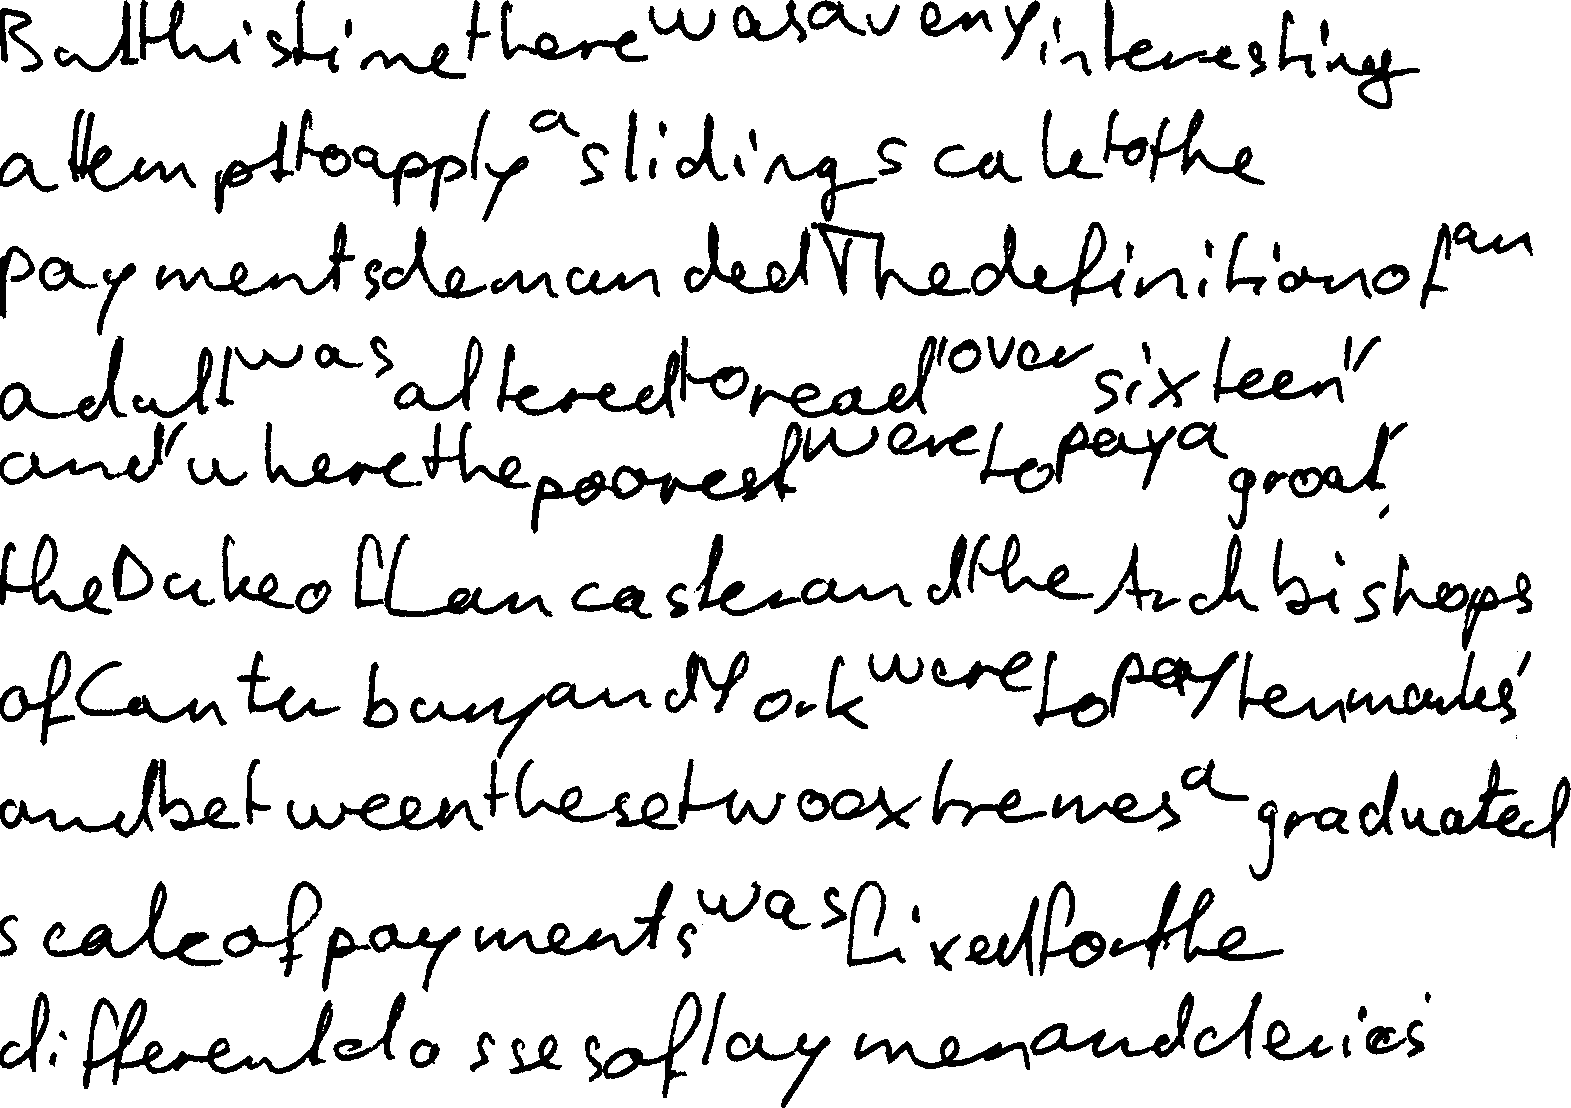 But this time there was a very interesting
attempt to apply a sliding scale to the
payments demanded The definition of an
adult was altered to read "over sixteen"
and where the poorest were to pay a groat,
the Duke of Lancaster and the Archbishops
of Canterbury and York were to pay ten marks
and between these two extremes a graduated
scale of payments was fixed for the
different classes of laymen and clerics